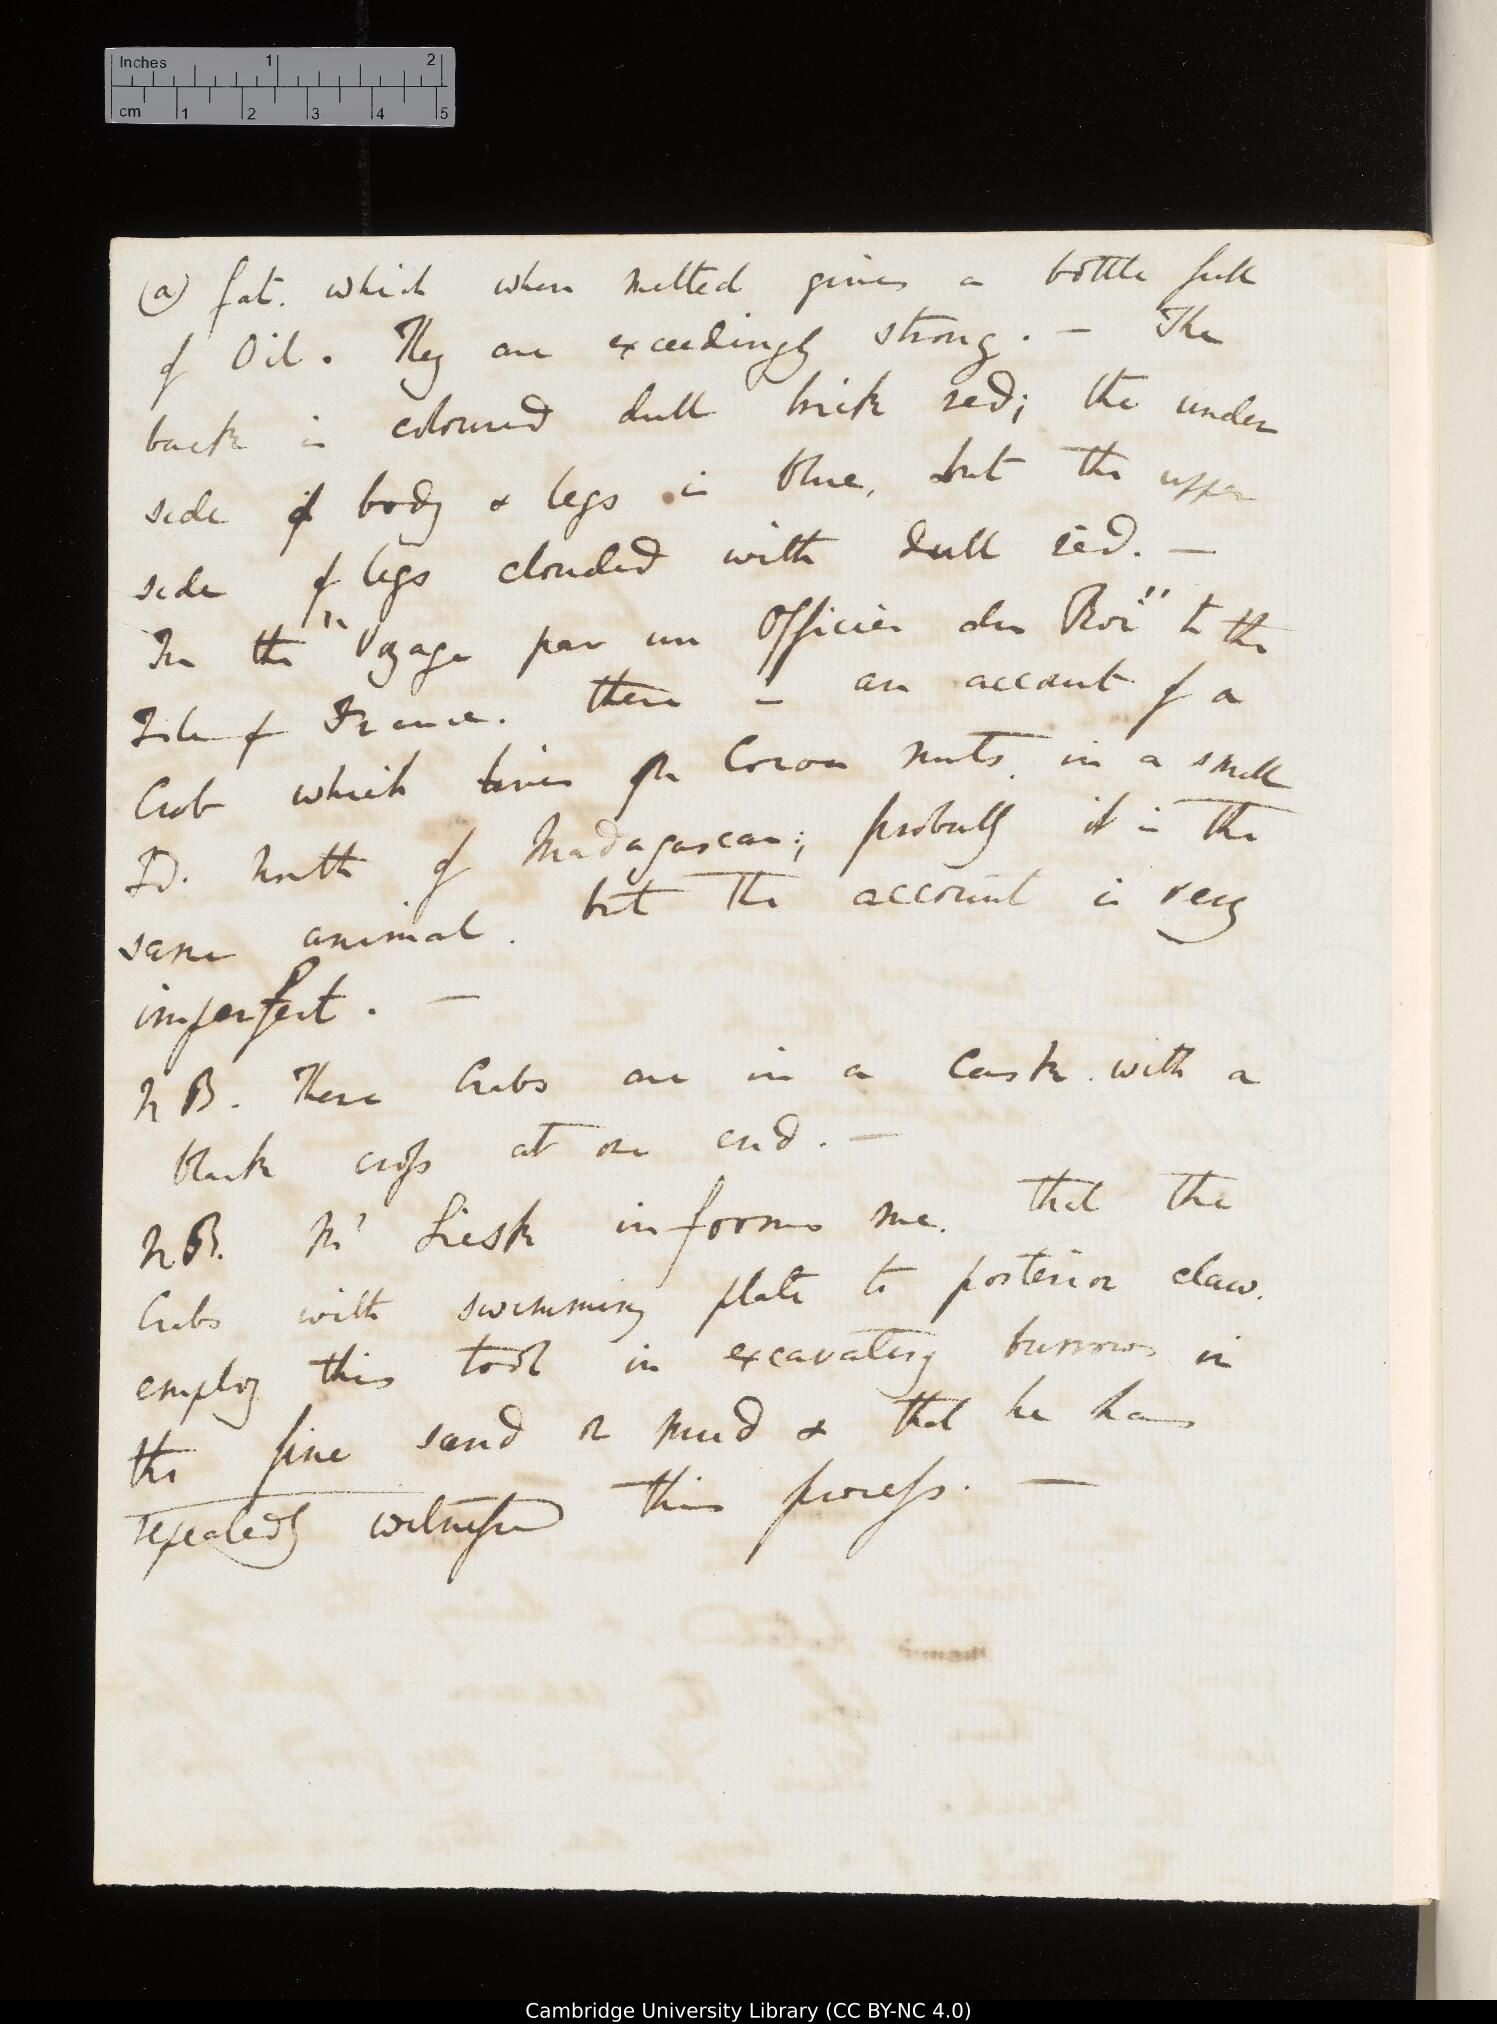 Inches 1 2
cm 1 2 3 4 5
(a) fat. which when melted gives a bottle full
of Oil. They are exceedingly strong. — The
back is coloured dull brick red; the under
side of body & legs is blue, but the upper
side of legs clouded with dull red. —
In the "Voyage par un Officier du Roi" to the
Isle of France. there is an account of a
Crab which lives on Cocoa nuts. in a small
Isd. North of Madagascar; probably it is the
same animal. but the account is very
imperfect. —
NB. These Crabs are in a Cask. with a
black cross at one end. —
NB. Mr Liesk informs me. that the
Crabs with swimming plate to posterior claw.
employ this tool in excavating burrows in
the fine sand or mud & that he has
repeatedly witnessed this process. —
Cambridge University Library (CC BY-NC 4.0)